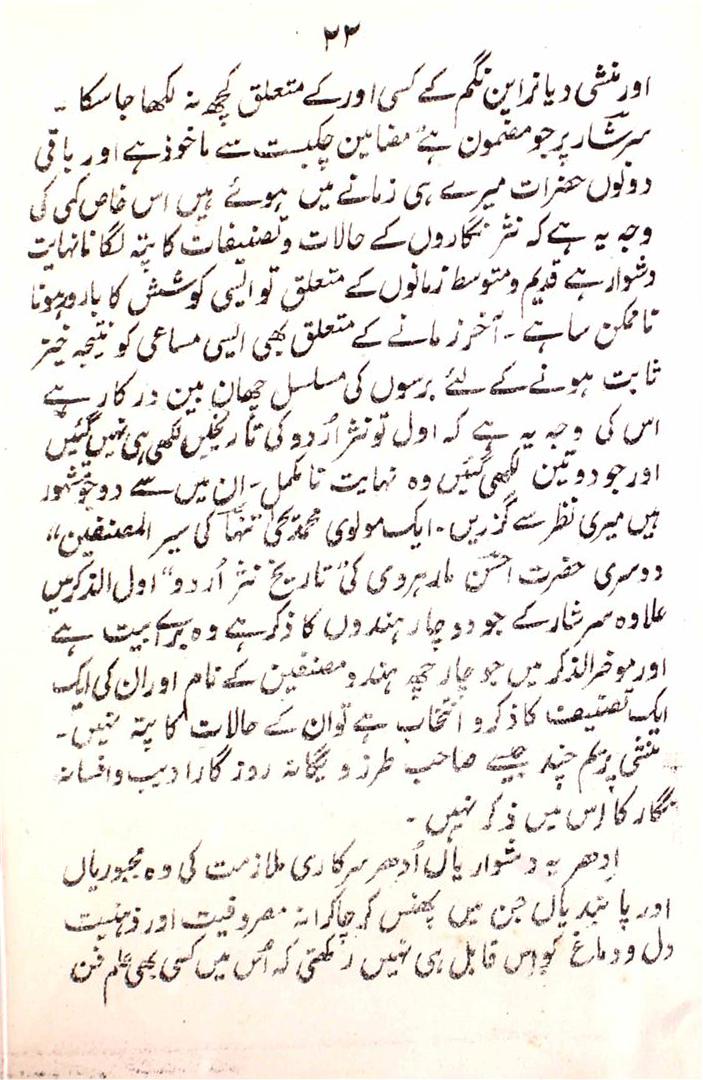 ۲۳
اور منشی دیا نراین نگم کے کسی اور کے متعلق کچھ نہ لکھا جا سکا ۔
سرشار پر جو مضمون ہے مضامین چکبست سے ماخوذ ہے اور باقی
دونوں حضرات میرے ہی زمانے میں ہوئے ہیں اس خاص کمی کی
وجہ یہ ہے کہ نثر نگاروں کے حالات و تصنیفات کا پتہ لگانا نہایت
دشوار ہے قدیم و متوسط زمانوں کے متعلق تو ایسی کوشش کا بارور ہونا
ناممکن سا ہے ۔ آخر زمانے کے متعلق بھی ایسی مساعی کو نتیجہ خیز
ثابت ہونے کے لئے برسوں کی مسلسل چھان بین درکار ہے
اس کی وجہ یہ ہے کہ اول تو نثر اُردو کی تاریخیں لکھی ہی نہیں گئیں
اور جو دو تین لکھی گئیں وہ نہایت نامکمل ۔ ان میں سے دو جو مشہور
ہیں میری نظر سے گزریں ۔ ایک مولوی محمد یحیٰ تنہا کی سیر المصنفین"
دوسری حضرت احسن مارہروی کی "تاریخ نثر اُردو" اول الذکر میں
علاوہ سرشار کے جو دو چار ہندوں کا ذکر ہے وہ برائے بیت ہے
اور موخر الذکر میں جو چار چھ ہندو مصنفین کے نام اور ان کی ایک
ایک تصنیف کا ذکر و انتخاب ہے تو ان کے حالات کا پتہ نہیں ۔
منشی پریم چند جیسے صاحب طرز و یگانہ روزگار ادیب و افسانہ
نگار کا اس میں ذکر نہیں ۔
اِدھر یہ دشواریاں اُدھر سرکاری ملازمت کی وہ مجبوریاں
اور پابندیاں جن میں پھنس کر چاکرانہ مصروفیت اور ذہنیت
دل و دماغ کو اس قابل ہی نہیں رکھتی کہ اُس میں کسی بھی علم فن